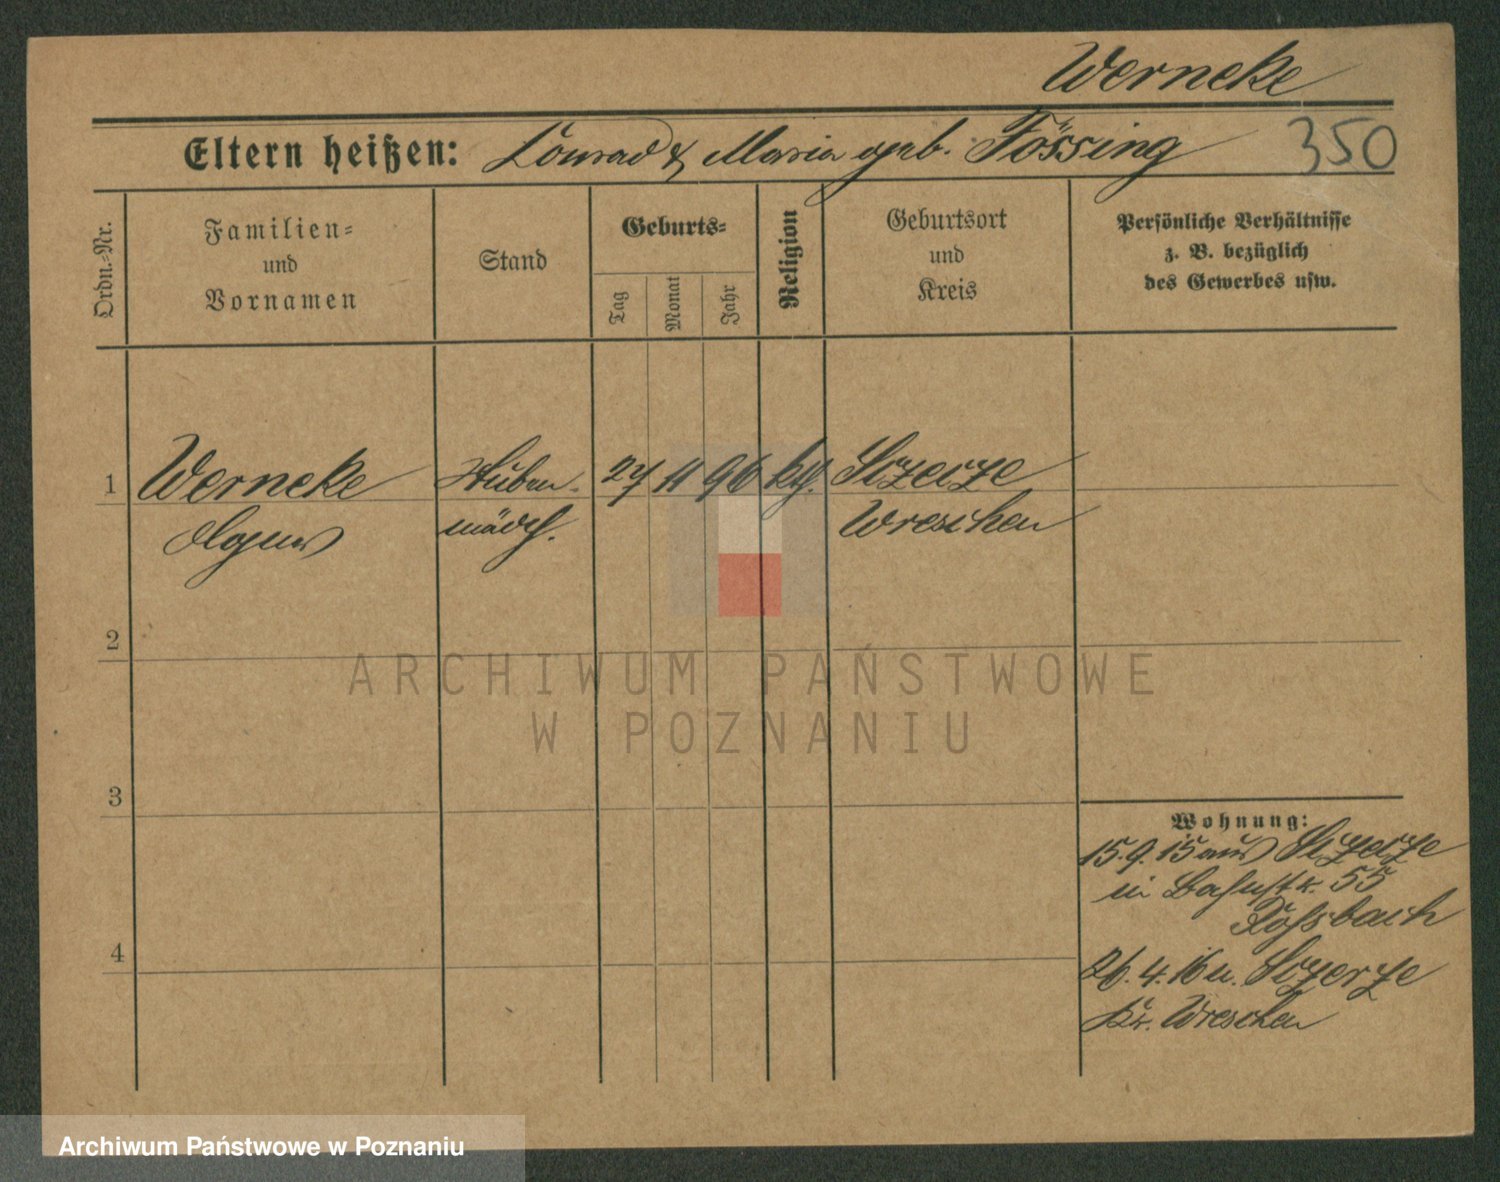 Werneke
Eltern heißen: Konrad & Maria geb. Fössing 350
Ordn.-Nr.
Familien-
und
Vornamen
Stand
Geburts-
Tag
Monat
Jahr
Religion
Geburtsort
und
Kreis
Persönliche Verhältnisse
z. B. bezüglich
des Gewerbes usw.
1 Werneke Stuben- 27 11 96 kth.
mädch. Wreschen
2
3
4
Wohnung:
15.9.15 aus
in Bahnstr. 55
26.4.16 n.
Kr. Wreschen
ARCHIWUM PAŃSTWOWE
W POZNANIU
Archiwum Państwowe w Poznaniu